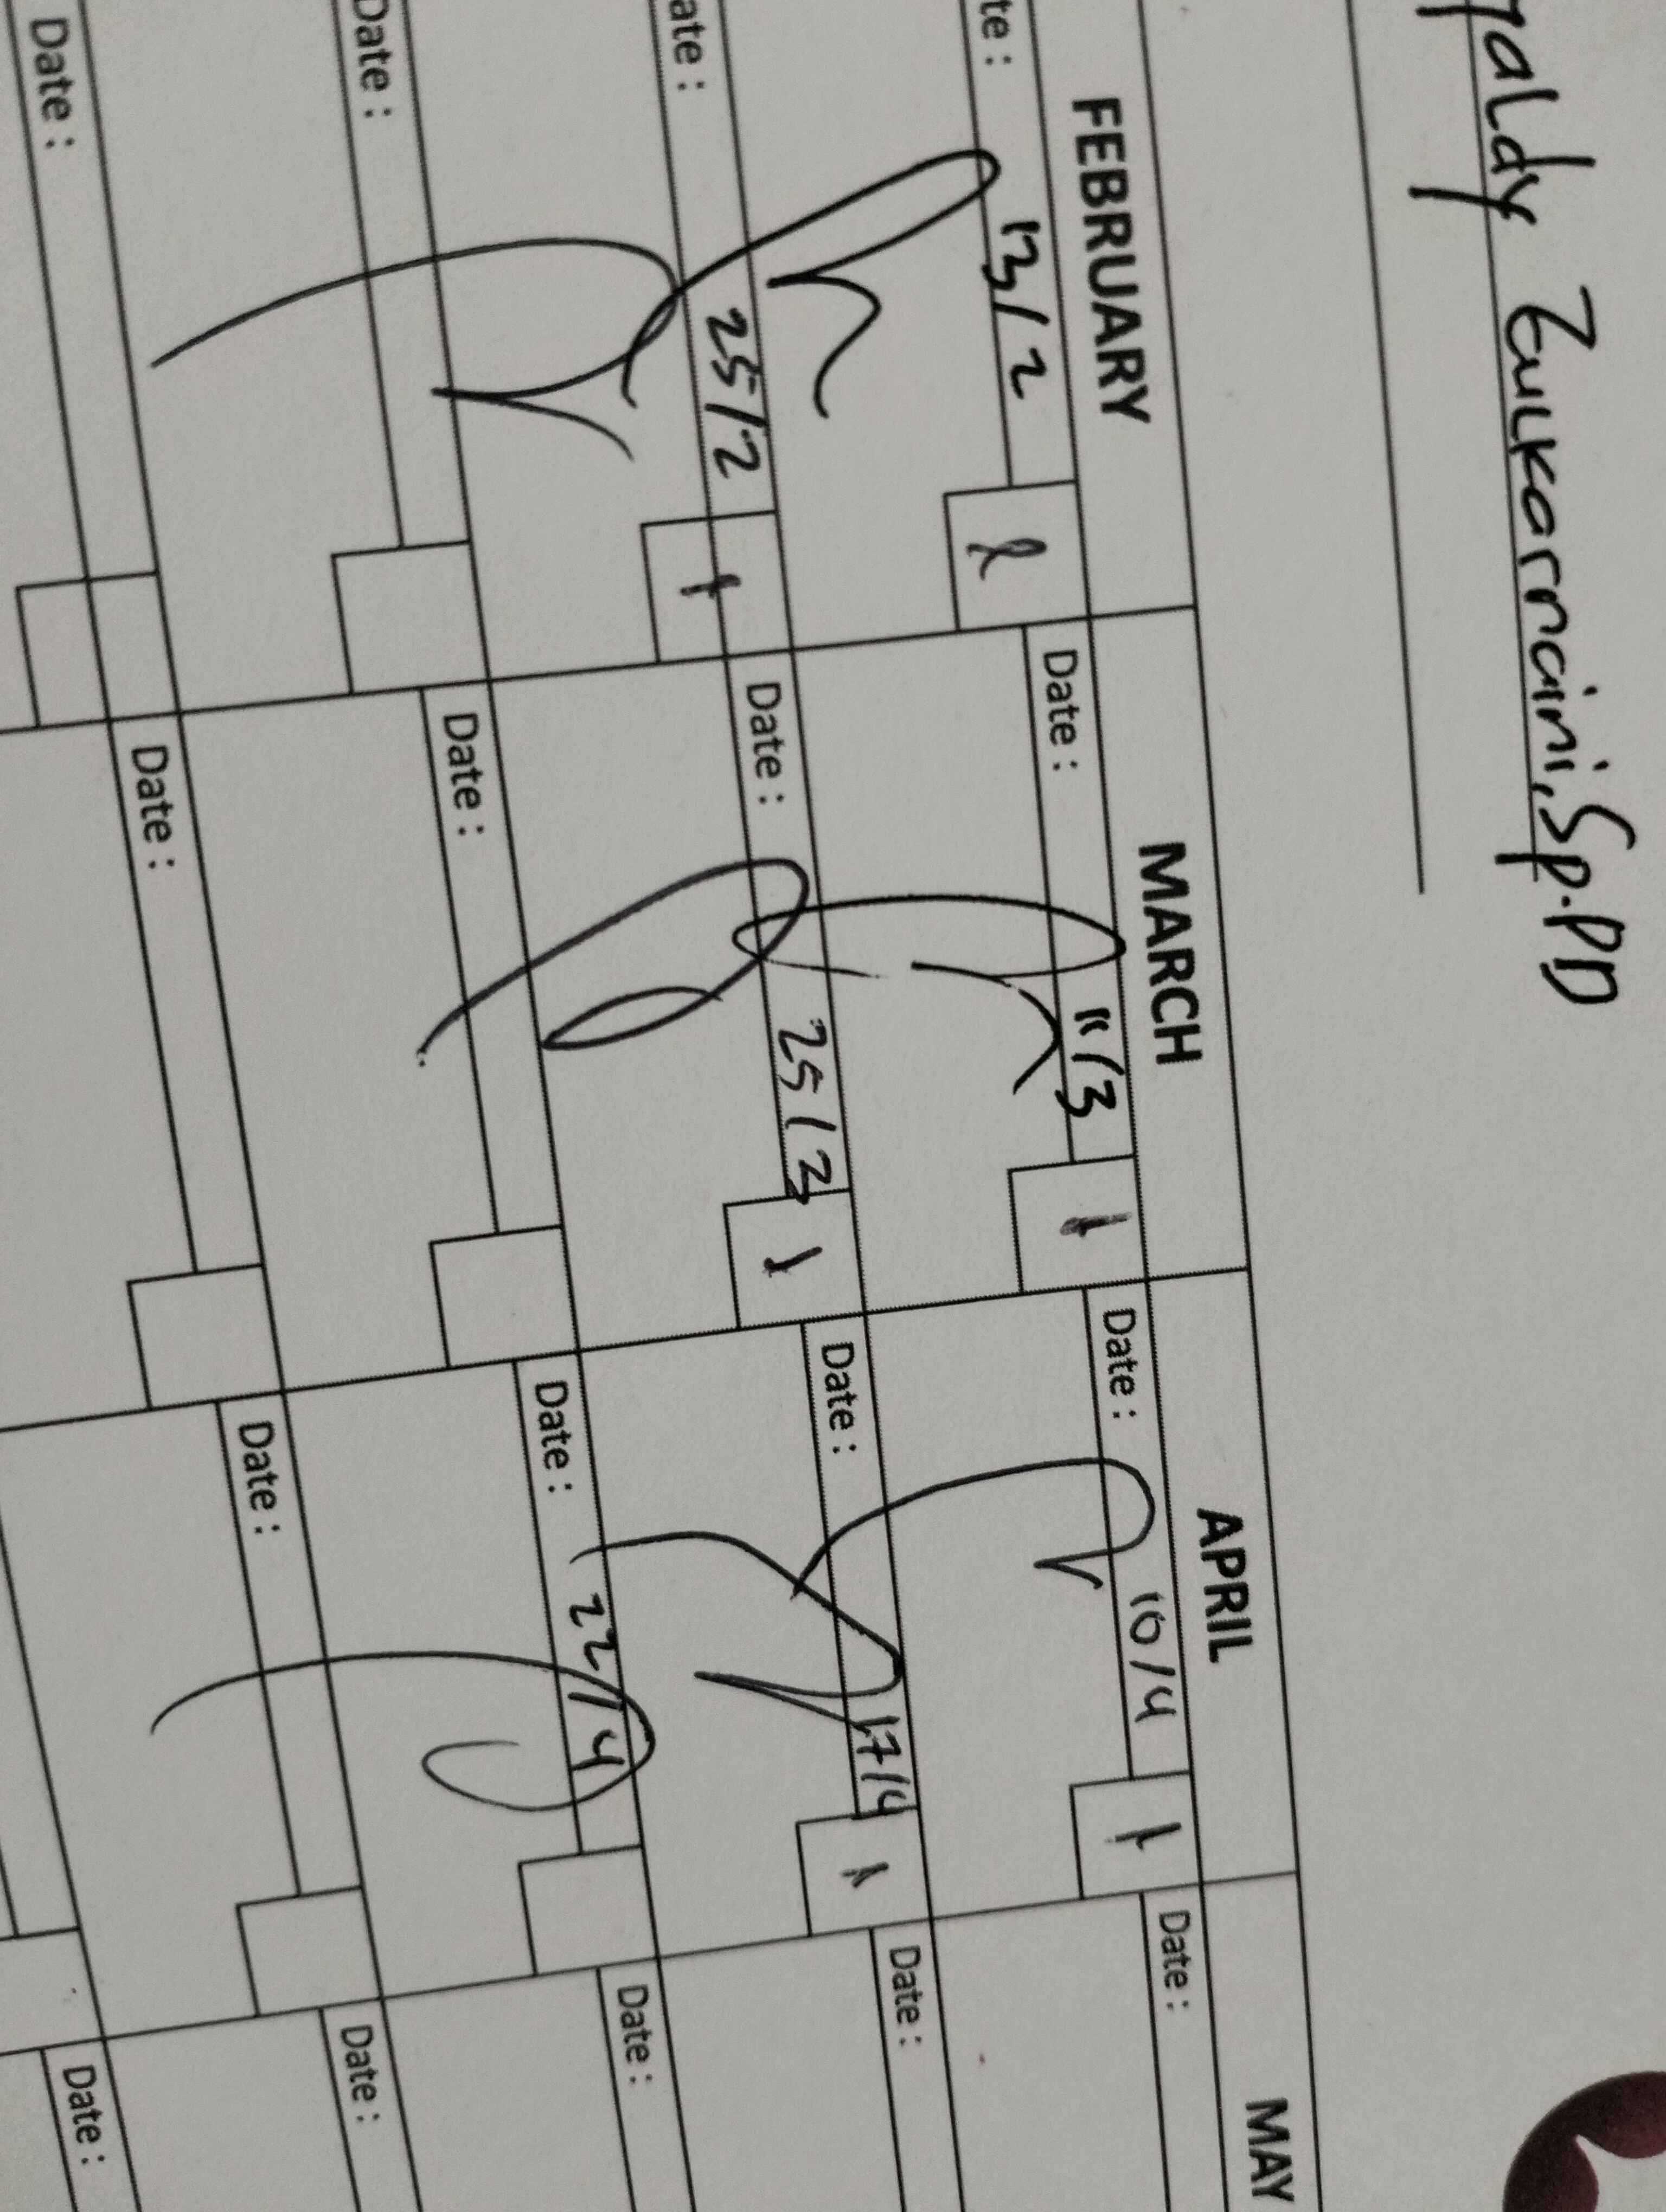 Zulkarnaini, Sp.PD
FEBRUARY MARCH APRIL MAY
te : 13/2 Date : 11/3 1 Date : 10/4 1 Date :
ate : 25/2 1 Date : 25/3 1 Date : 17/4 1 Date :
Date : Date : Date : 22/4 Date :
Date : Date : Date : Date :
Date :